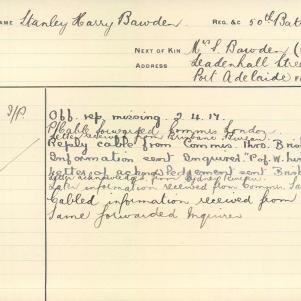 AME Stanley Harry Bawden. REG. &c 50th Bat
NEXT OF KIN Mrs S. Bawden (
ADDRESS Leadenhall Stre
Port Adelaide F
I/P. Off. rep. missing. 2.4.17.
P/Cable forwarded Commis London
Letter received from Brisbane Bureau
Reply cable from Commis. thro. Brist
Information sent Enquirer "P of W.
Letter of acknowledgement sent Brist
Letter acknowledg. from Sydney Bureau.
Later information received from Commis.
Cabled information received from
Same forwarded Inquirer